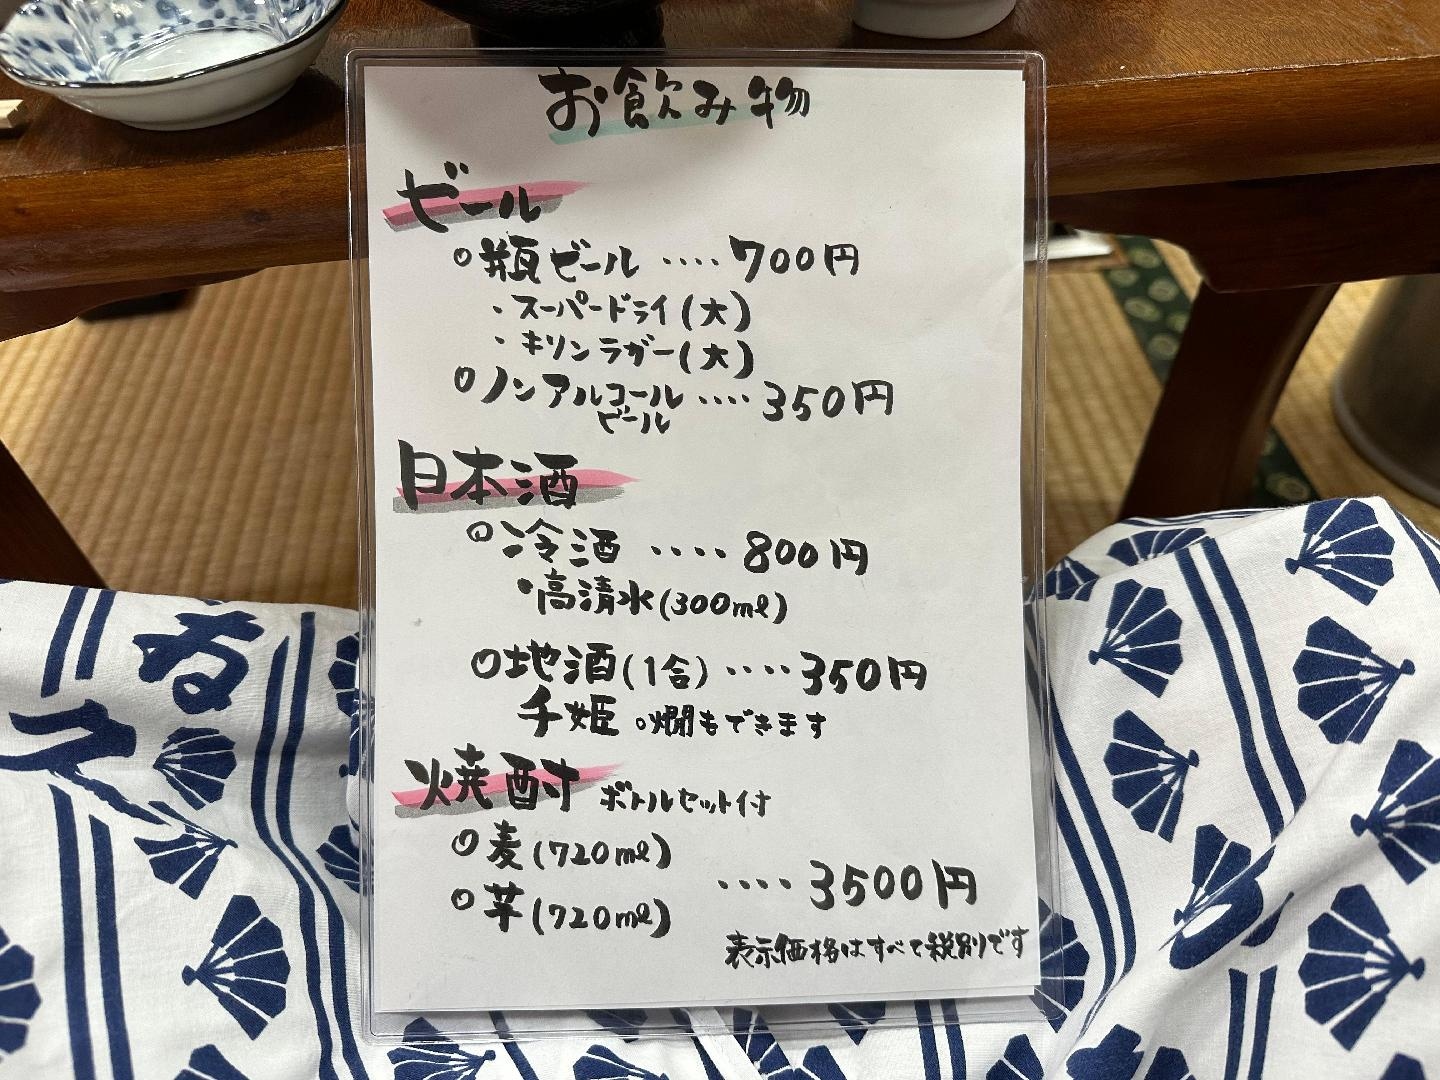 お飲み物
ビール
○瓶ビール ････700円
・スーパードライ(大)
・キリンラガー(大)
○ノンアルコール ････350円
ビール
日本酒
○冷酒 ････800円
・高清水(300ml)
○地酒(1合)････350円
千姫 ○燗もできます
焼酎 ボトルセット付
○麦(720ml)
○芋(720ml) ････3500円
表示価格はすべて税別です
ゐ